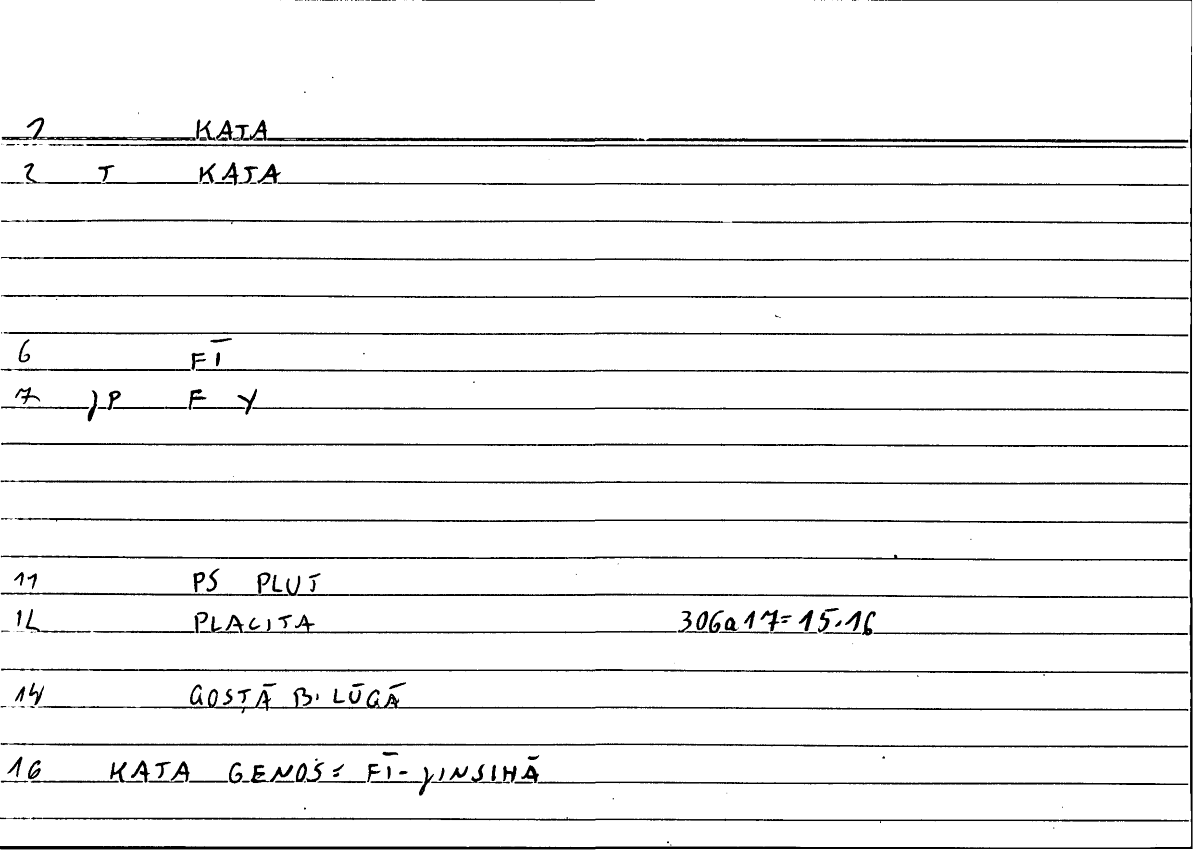 1 KATA
2 T KATA
6 FĪ
7 ȷP F Y
11 PS PLUT
12 PLACITA 306a17=15.16
14 QOSṬĀ B. LŪQĀ
16 KATA GENOS = FĪ-ȷINSIHĀ